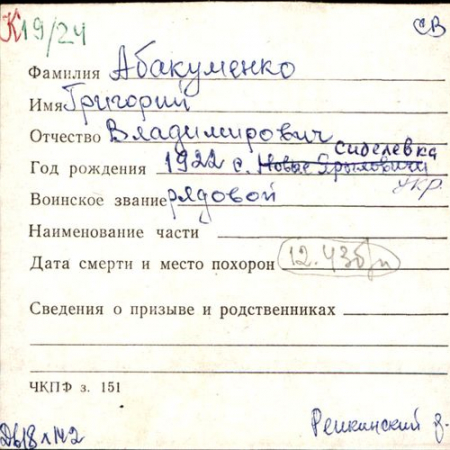 К19/24 СВ
Фамилия Абакуменко
Имя Григорий
Отчество Владимирович
Сибелевка
Год рождения 1922 с. Новые Ярыловичи
укр.
Воинское звание рядовой
Наименование части
Дата смерти и место похорон 12.43 б/п
Сведения о призыве и родственниках
ЧКПФ з. 151
Репкинский р-
Д618л142